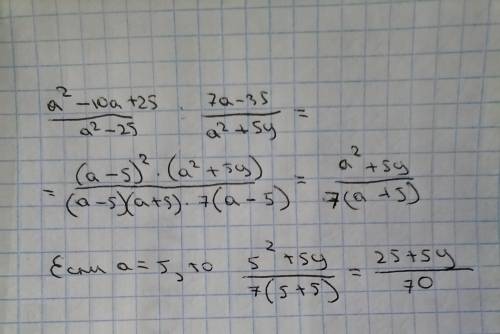 a² - 10a + 25 / a² - 25 · 7a - 35 / a² + 5y =
= (a - 5)² · (a² + 5y) / (a - 5)(a + 5) · 7(a - 5) = a² + 5y / 7(a + 5)
Если a = 5, то 5² + 5y / 7(5 + 5) = 25 + 5y / 70